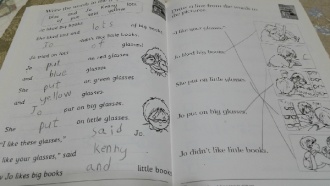 Write the words in the
blue and Jo Kenny lots
of put said yellow
Jo liked big books.
She liked lots of big books.
Jo didn't like little books.
Jo put on lots of glasses.
Jo put on red glasses
and blue glasses.
She put on green glasses
and yellow glasses.
Jo put on big glasses.
She put on little glasses.
"I like these glasses," said Jo.
"I like your glasses," said Kenny
Jo likes big books and little books
Draw a line from the words to
the pictures.
"I like your glasses."
Jo liked big books.
She put on little glasses.
Jo put on big glasses.
Jo didn't like little books.